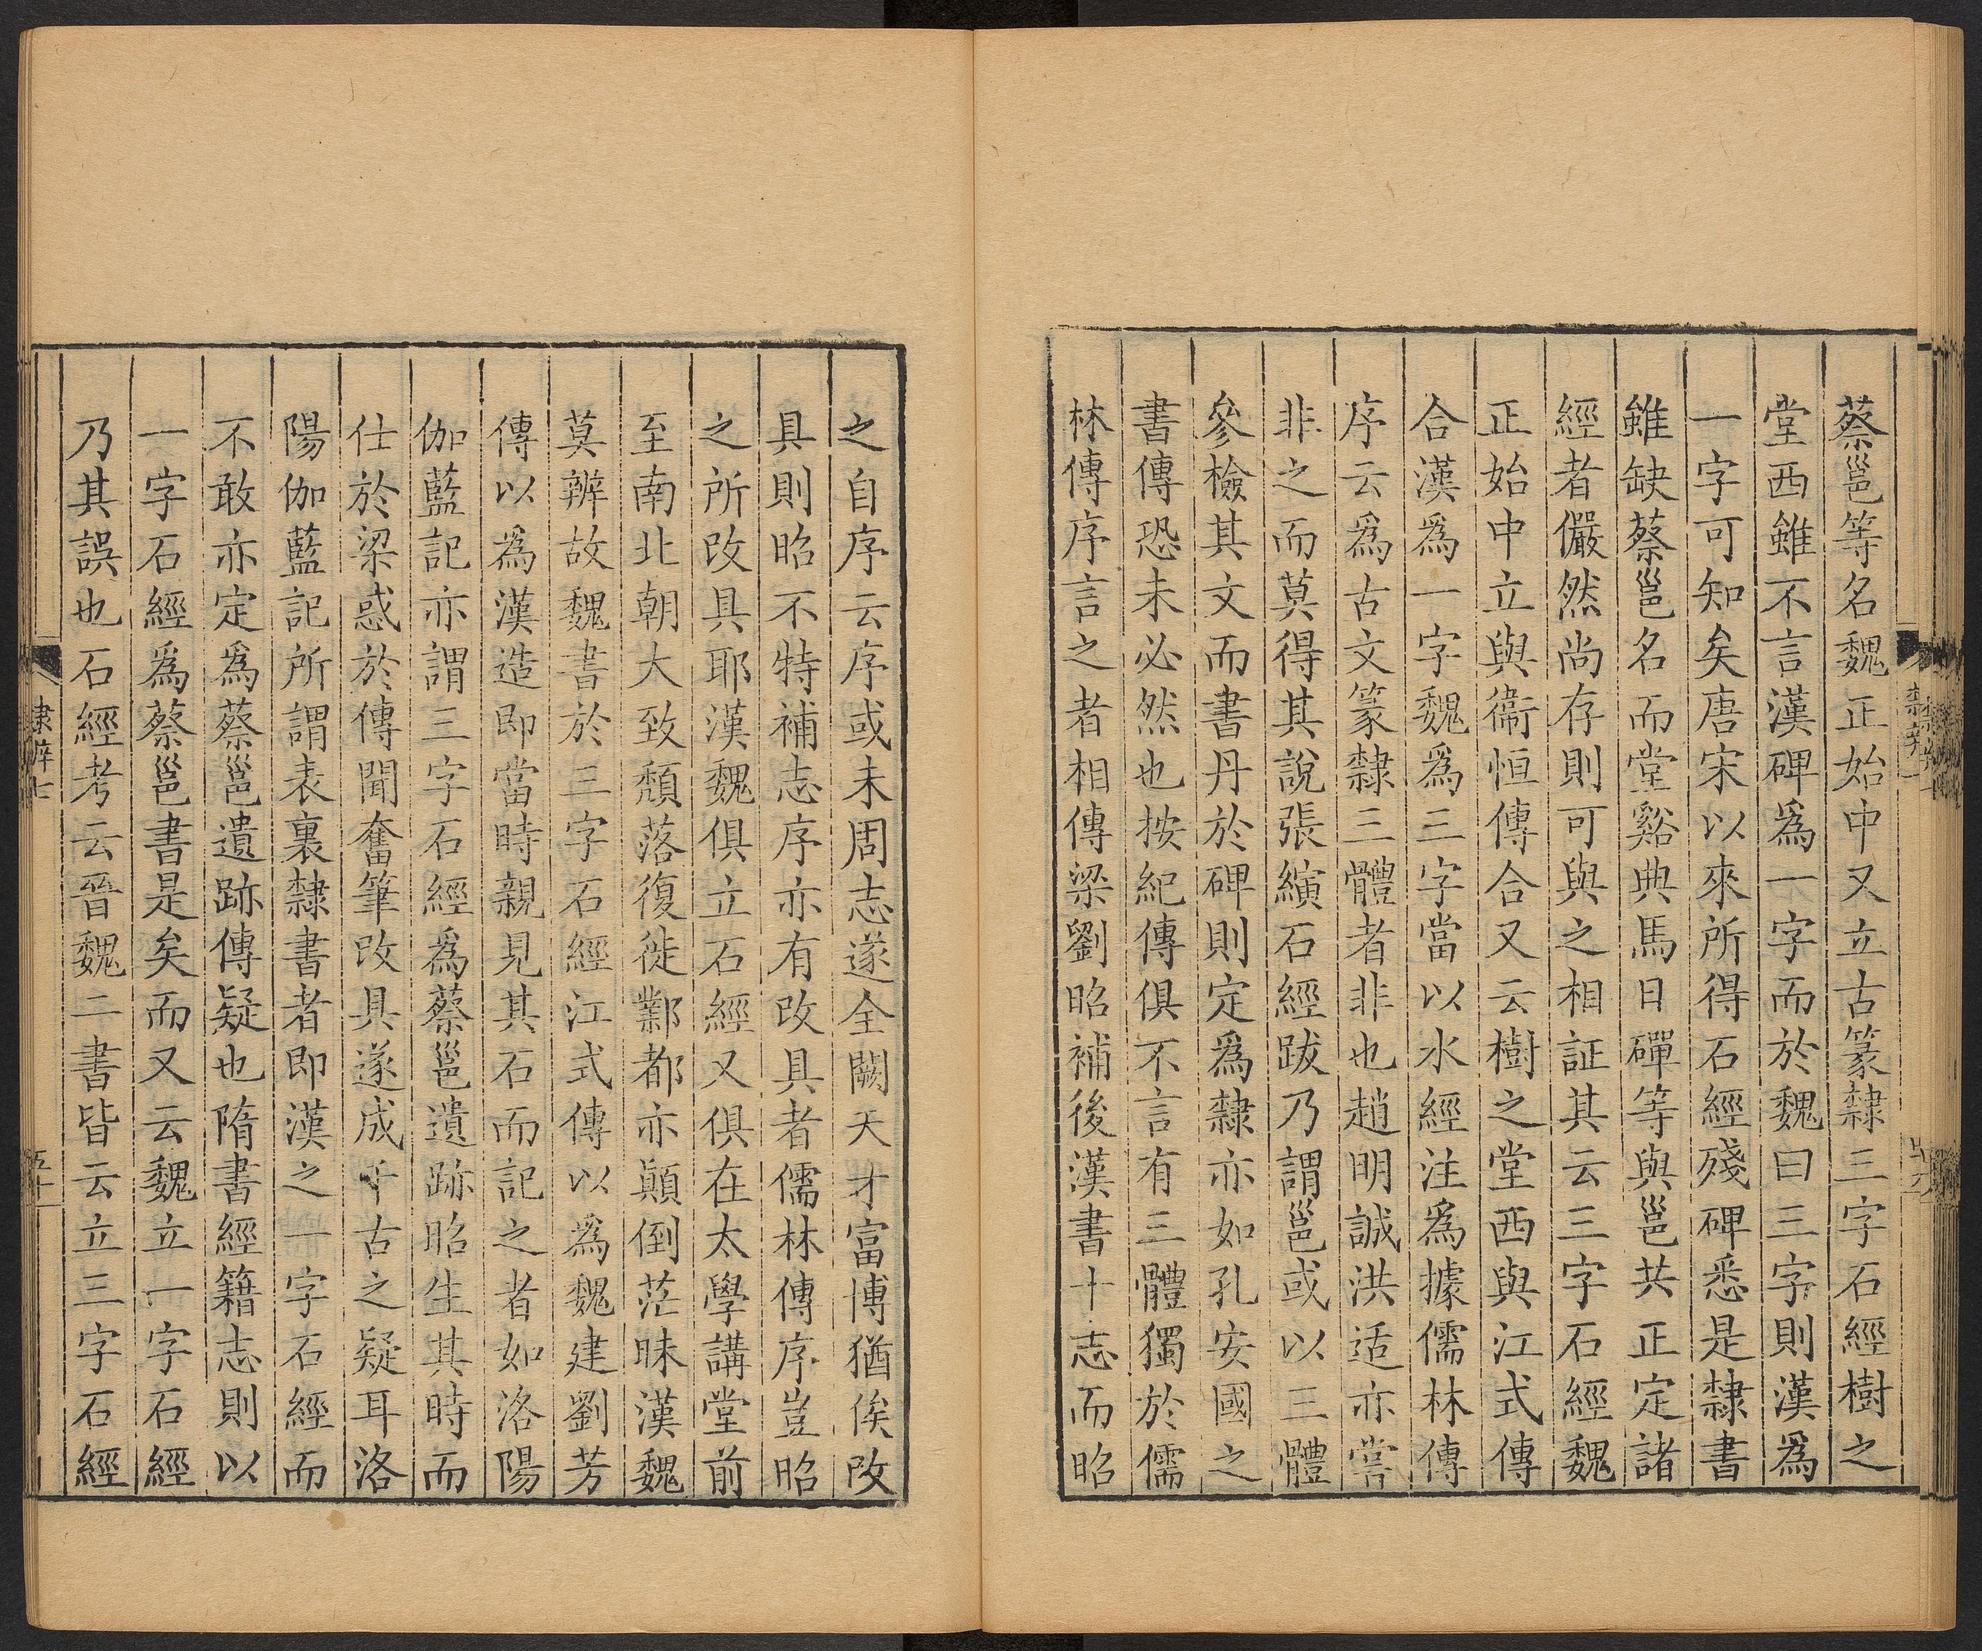 蔡邕等名魏正始中又立古篆隸三字石經樹之
堂西雖不言漢碑爲一字而於魏曰三字則漢爲
一字可知矣唐宋以來所得石經殘碑悉是隸書
雖缺蔡邕名而堂谿典馬日磾等與邕共正定諸
經者儼然尚存則可與之相証其云三字石經魏
正始中立與衞恒傳合又云樹之堂西與江式傳
合漢爲一字魏爲三字當以水經注爲據儒林傳
序云爲古文篆隸三體者非也趙明誠洪适亦嘗
非之而莫得其說張縯石經跋乃謂邕或以三體
參檢其文而書丹於碑則定爲隸亦如孔安國之
書傳恐未必然也按紀傳俱不言有三體獨於儒
林傳序言之者相傳梁劉昭補後漢書十志而昭
之自序云序或未周志遂全闕天才富博猶俟改
具則昭不特補志序亦有改具者儒林傳序豈昭
之所改具耶漢魏俱立石經又俱在太學講堂前
至南北朝大致頽落復徙鄴都亦顚倒茫昧漢魏
莫辨故魏書於三字石經江式傳以爲魏建劉芳
傳以爲漢造即當時親見其石而記之者如洛陽
伽藍記亦謂三字石經爲蔡邕遺跡昭生其時而
仕於梁惑於傳聞奮筆改具遂成千古之疑耳洛
陽伽藍記所謂表裏隸書者即漢之一字石經而
不敢亦定爲蔡邕遺跡傳疑也隋書經籍志則以
一字石經爲蔡邕書是矣而又云魏立一字石經
乃其誤也石經考云晉魏二書皆云立三字石經
隸辨七
五十